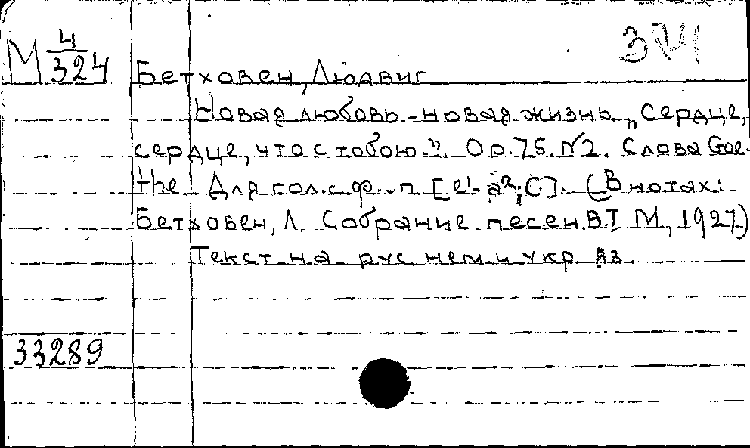 М 4/324
Бетховен, Людвиг
Новая любовь - новая жизнь „Сердце,
сердце, что с тобою". Op. 75. №2. Слова Goe-
the. Для гол. с ф-п [e¹-a²; C]. (В нотах:
Бетховен, Л. Собрание песен. В I М, 1927.)
Текст на рус нем и укр яз.
33289